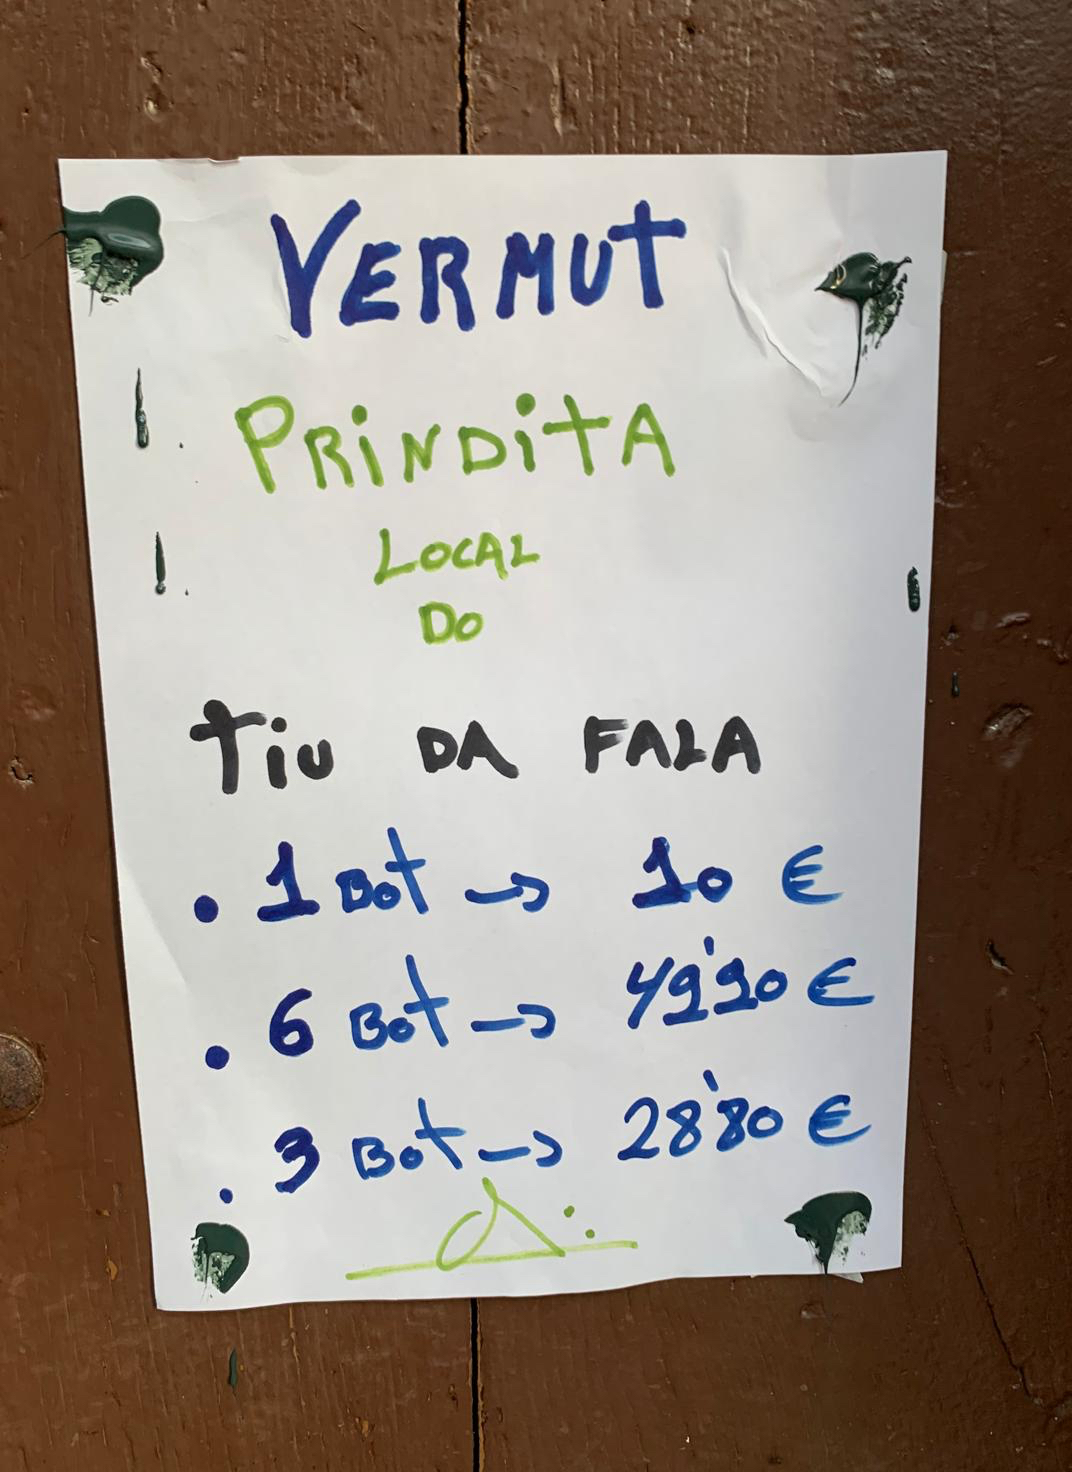 VERMUT
PRINDITA
LOCAL
DO
TIU DA FALA
. 1 BOT → 10 €
. 6 BOT → 49'90 €
. 3 BOT → 28'80 €